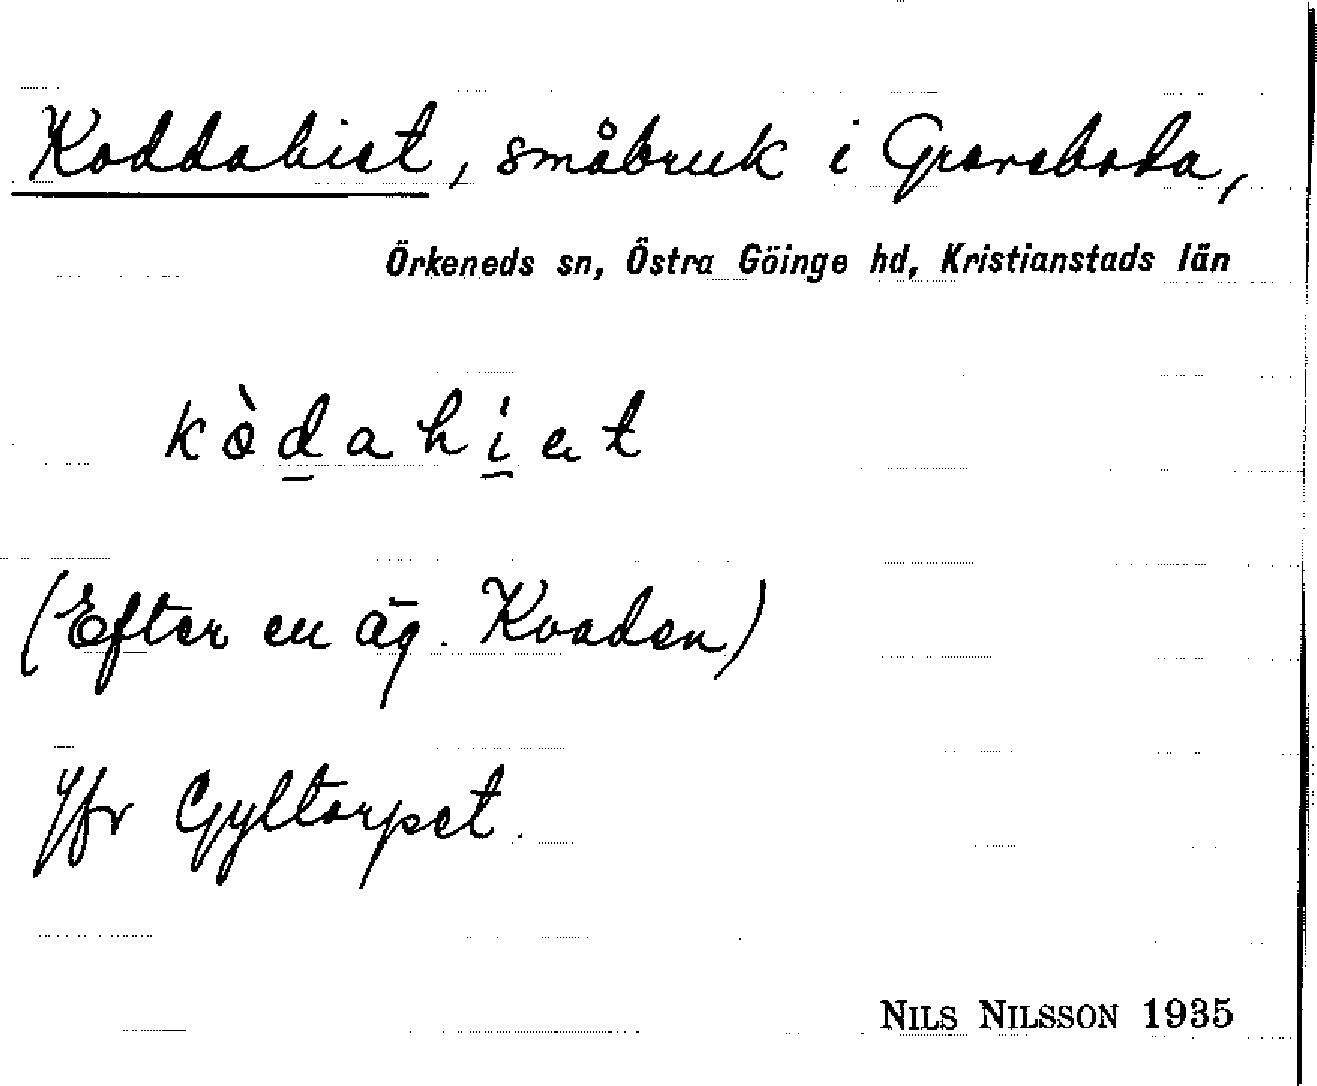 Koddahiet, småbruk i Gravsboda,
Örkeneds sn, Östra Göinge hd, Kristianstads län
kòdahiet
(Efter en äg. Kvaden)
Jfr Gyltorpet.
NILS NILSSON 1935